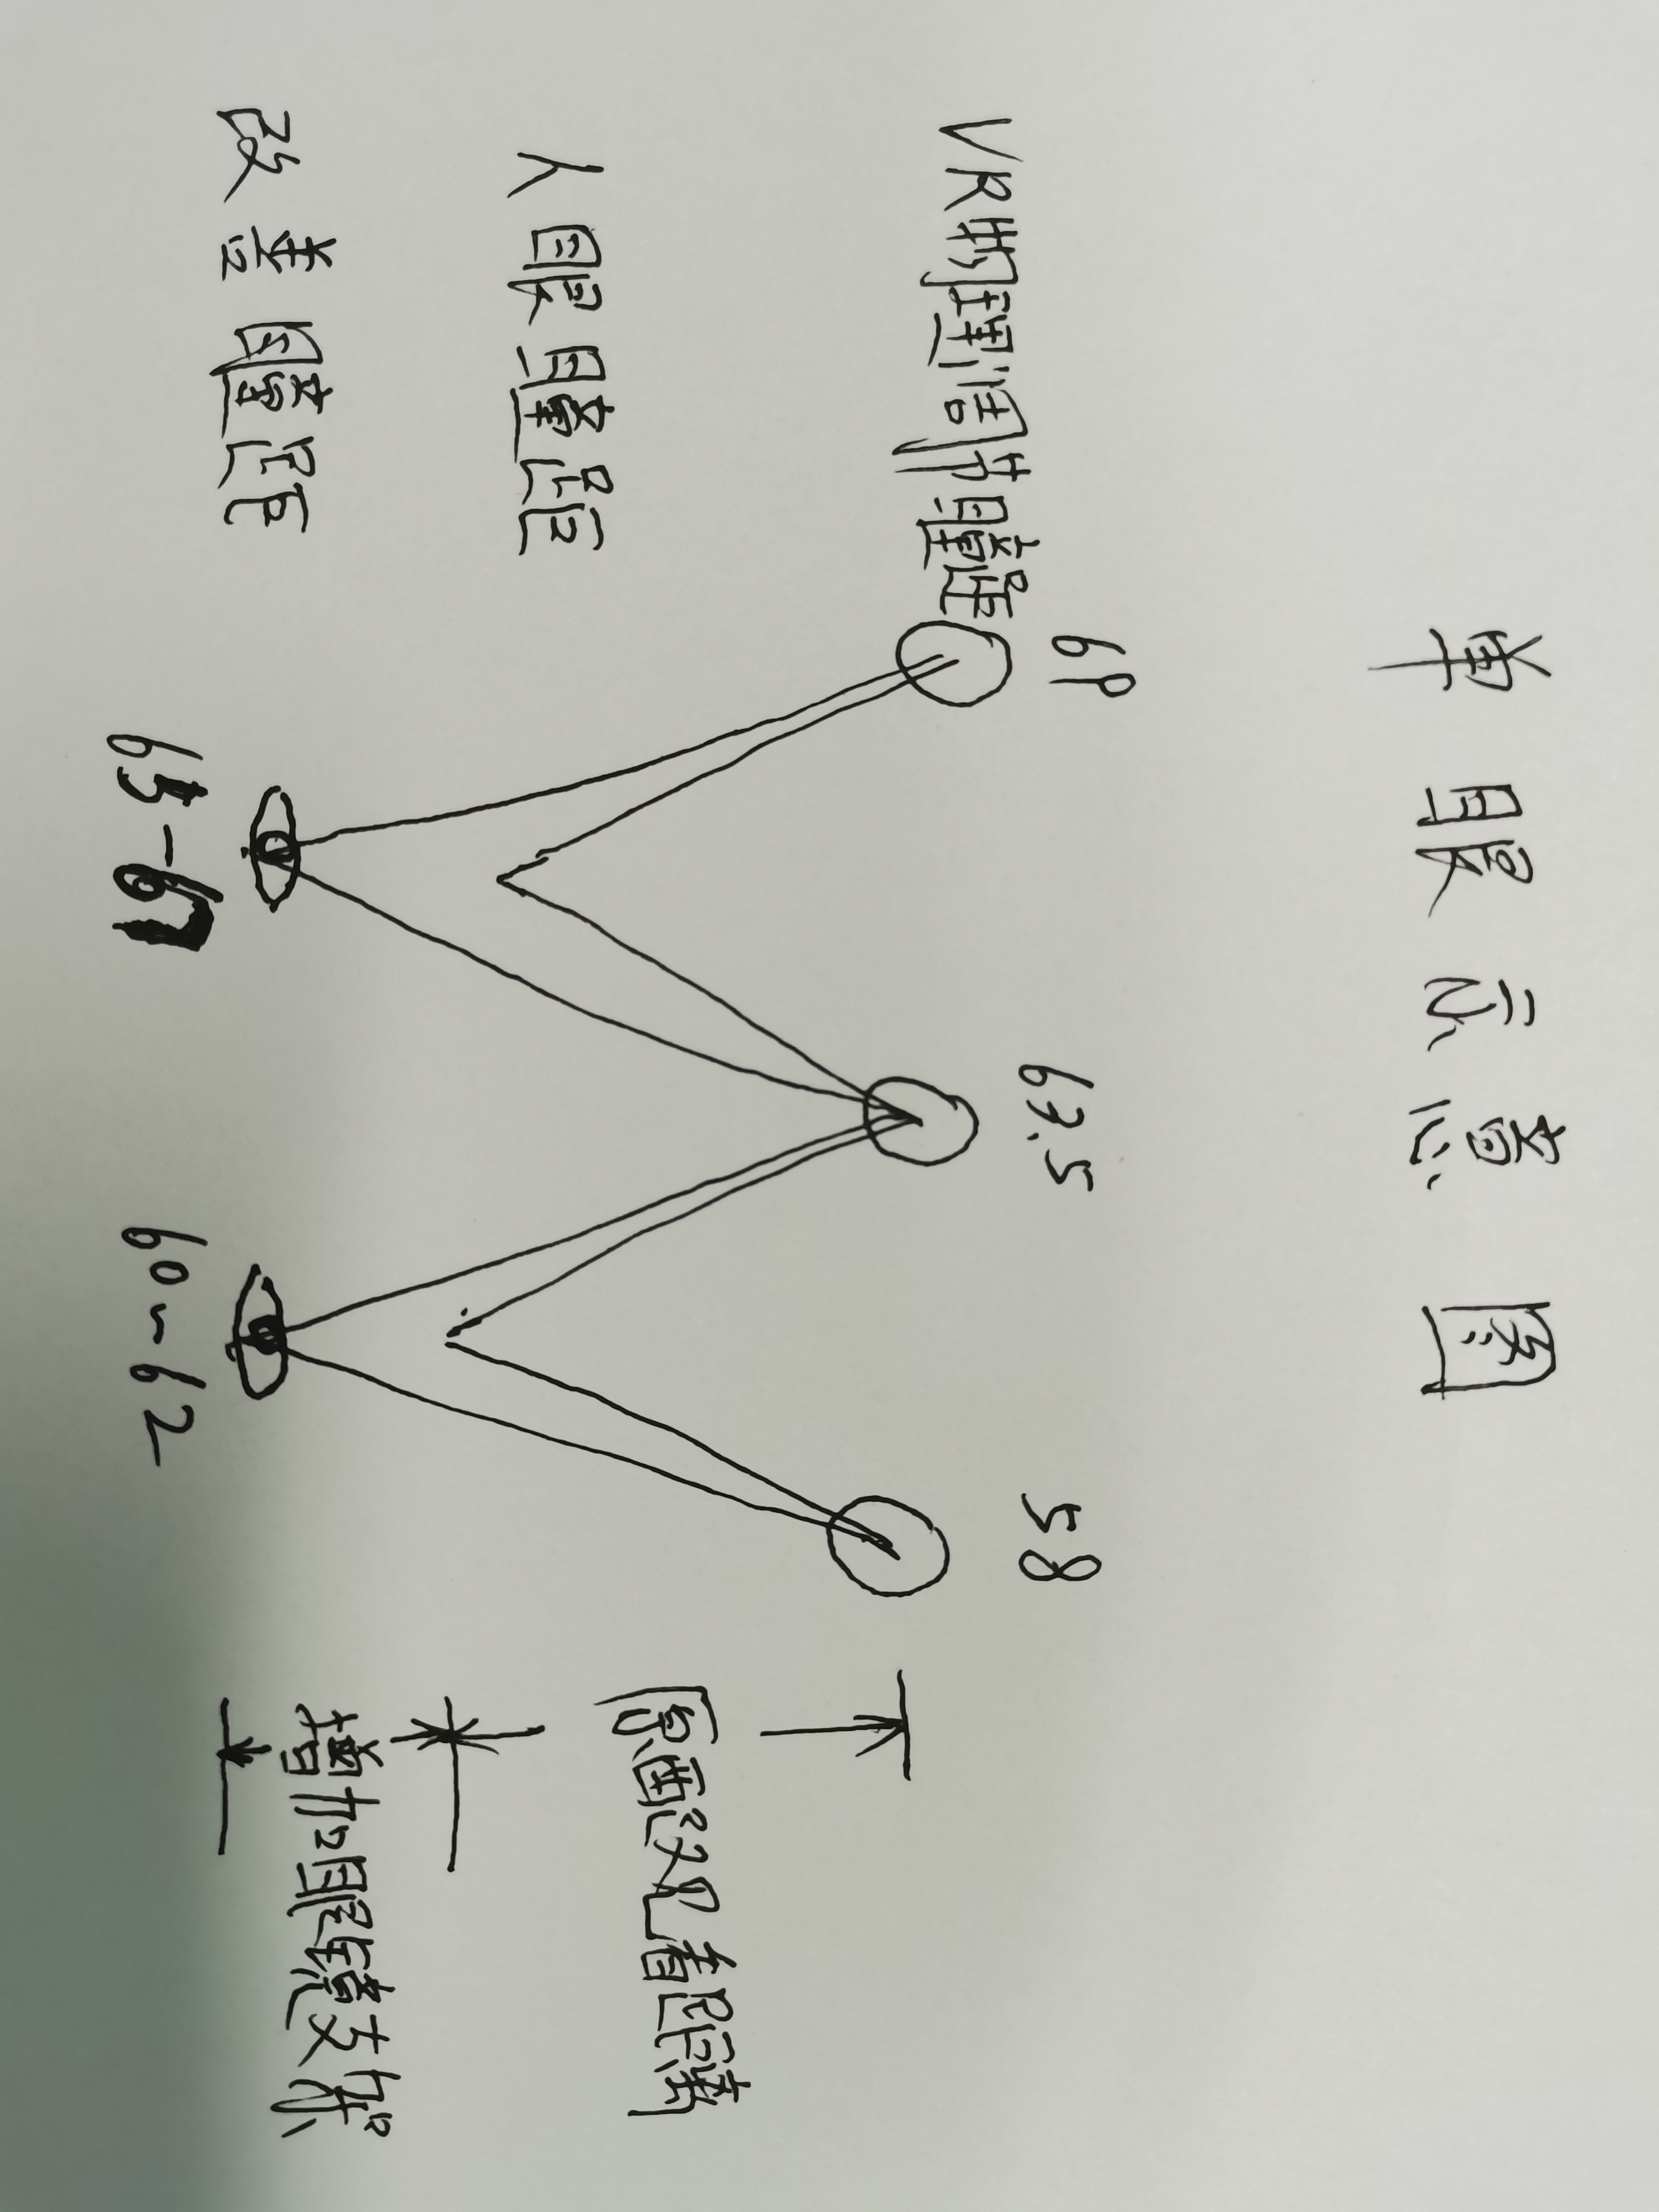 单眼示意图
69 63.5 58
VR物理调节瞳距
原配观看距离
人眼瞳距
增加眼镜支架
改善瞳距
65-67 60~62